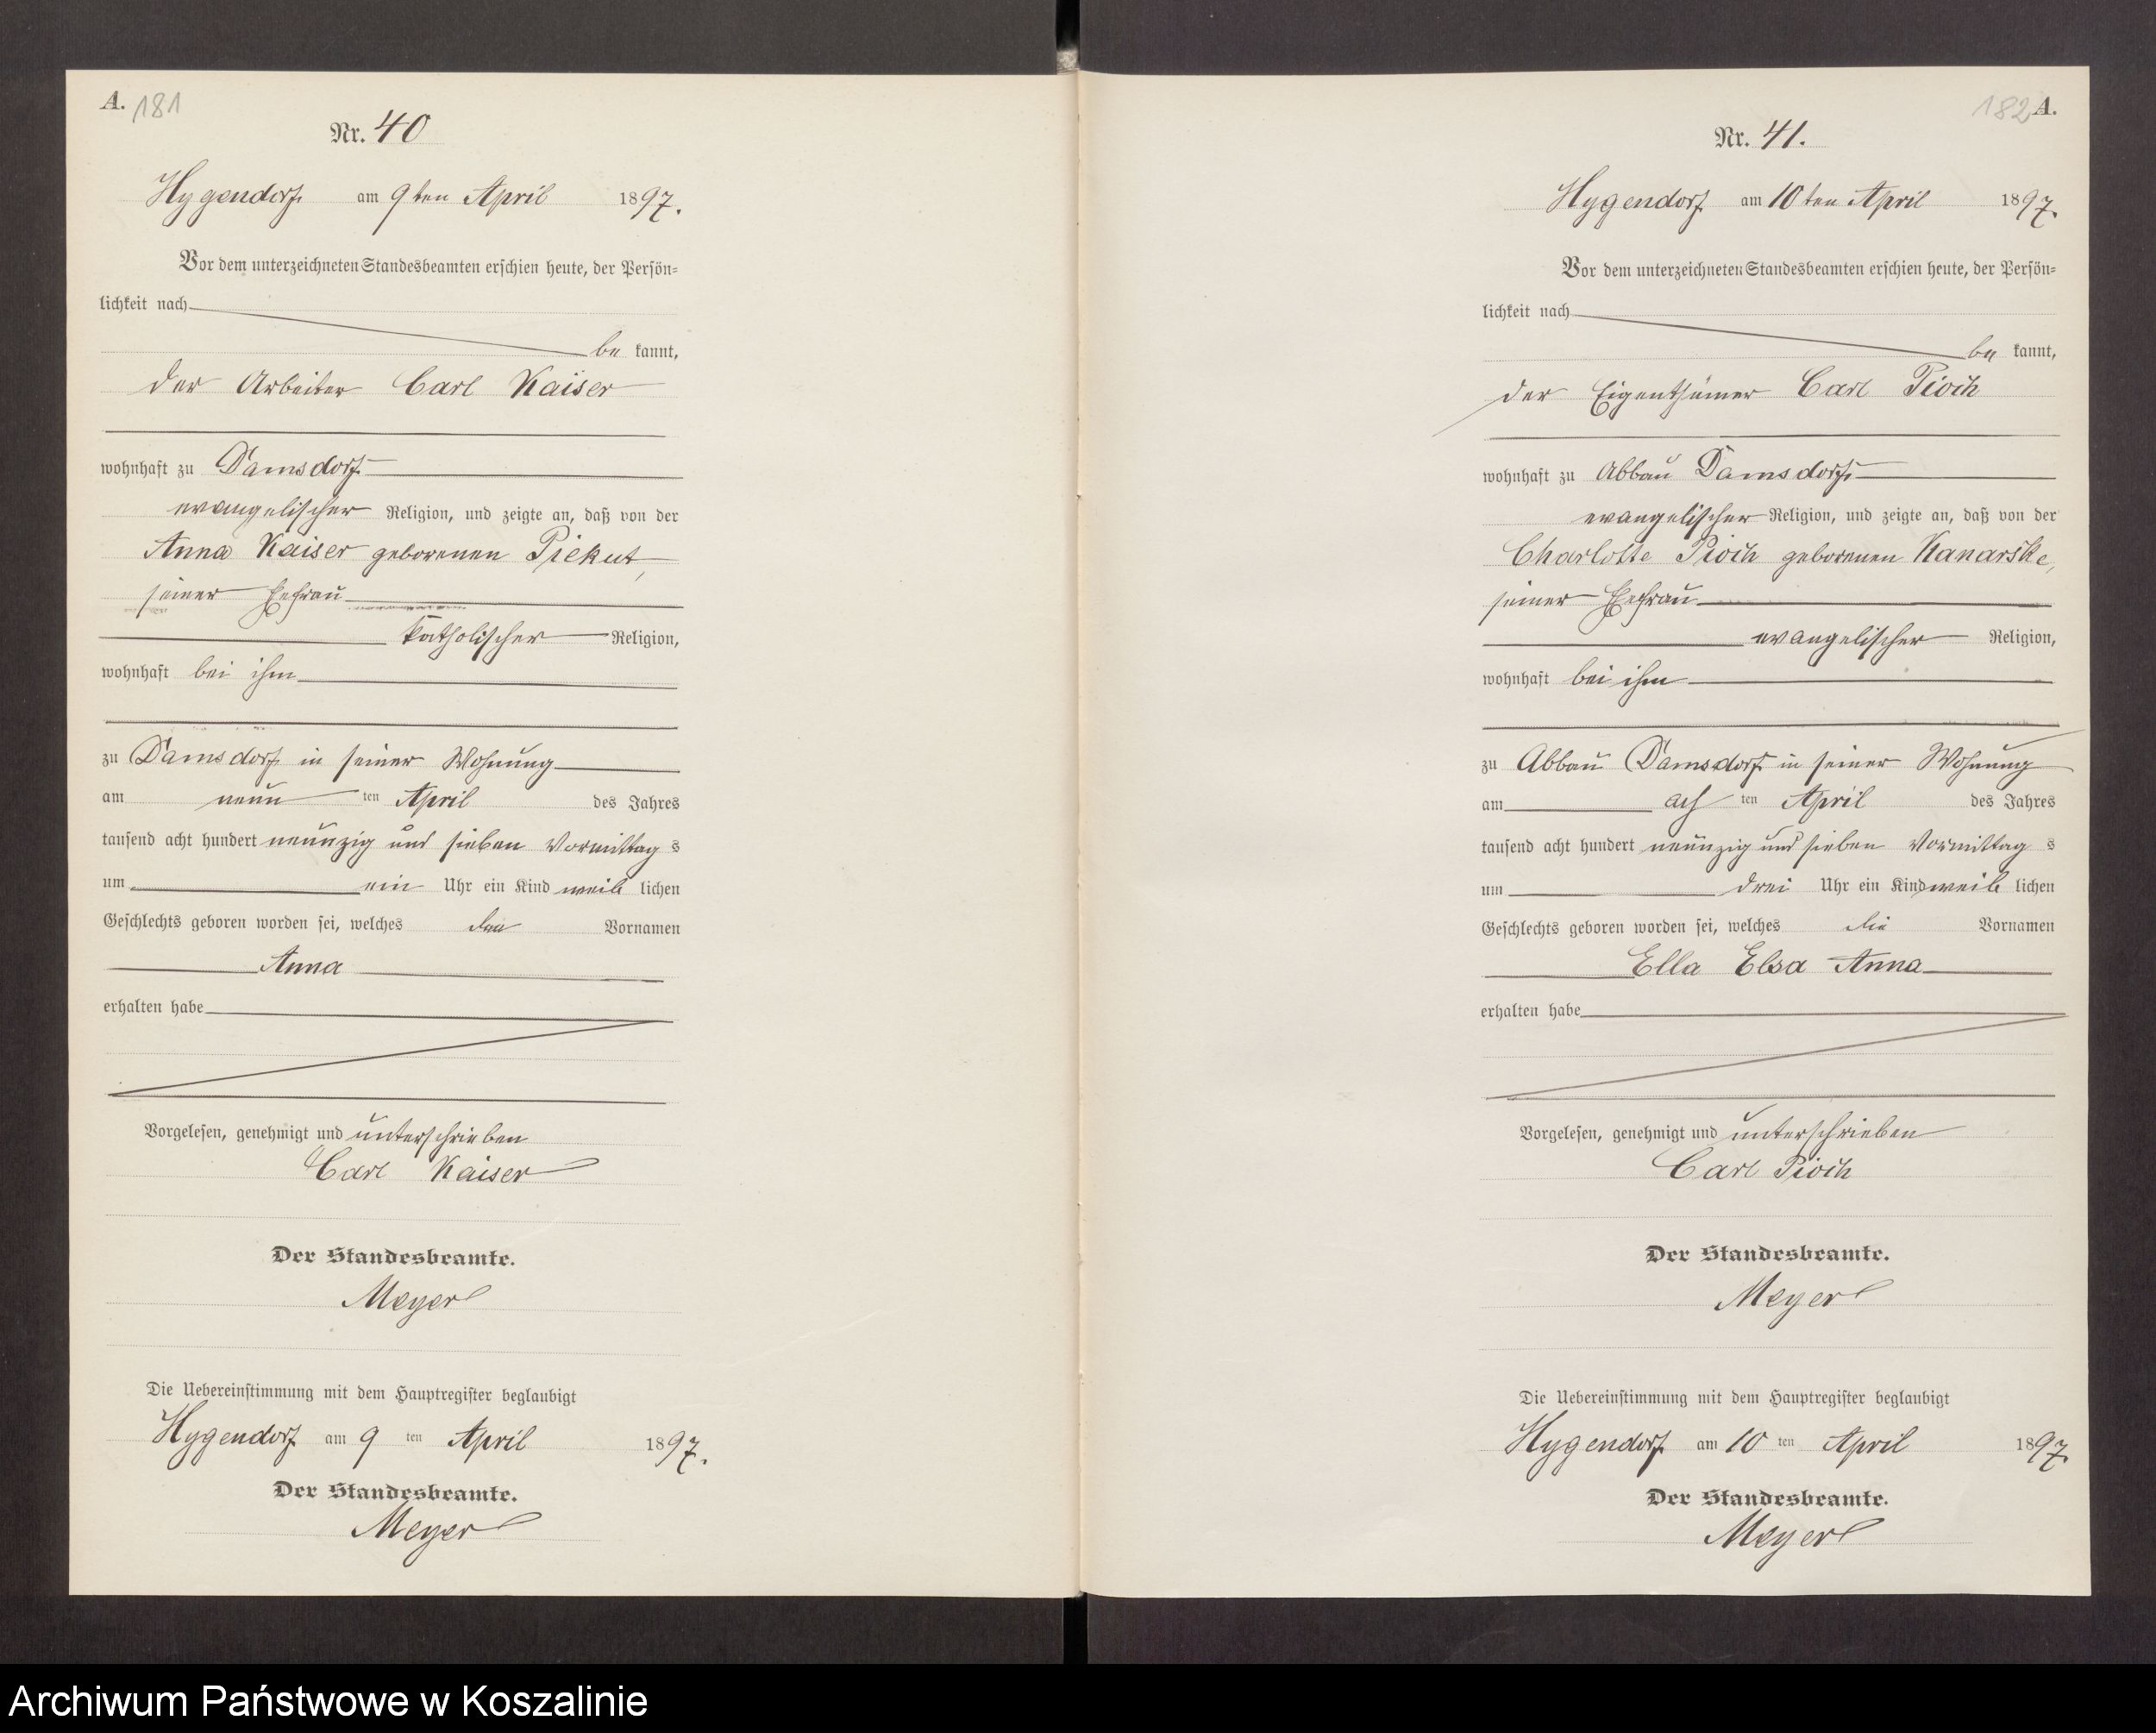 A. 181
Nr. 40
Hygendorf am 9ten April 1897.
Vor dem unterzeichneten Standesbeamten erschien heute, der Persön=
lichkeit nach
be kannt,
der Arbeiter Carl Kaiser
wohnhaft zu Damsdorf
evangelischer Religion, und zeigte an, daß von der
Anna Kaiser geborenen Piekut,
seiner Ehefrau
katholischer Religion,
wohnhaft bei ihm
zu Damsdorf in seiner Wohnung
am neun ten April des Jahres
tausend acht hundert neunzig und sieben Vormittag s
um ein Uhr ein Kind weib lichen
Geschlechts geboren worden sei, welches den Vornamen
Anna
erhalten habe
Vorgelesen, genehmigt und unterschrieben
Carl Kaiser
Der Standesbeamte.
Meyer
Die Uebereinstimmung mit dem Hauptregister beglaubigt
Hygendorf am 9 ten April 1897.
Der Standesbeamte.
Meyer
182 A.
Nr. 41.
Hygendorf am 10ten April 1897.
Vor dem unterzeichneten Standesbeamten erschien heute, der Persön=
lichkeit nach
be kannt,
der Eigenthümer Carl Pioch
wohnhaft zu Abbau Damsdorf
evangelischer Religion, und zeigte an, daß von der
Charlotte Pioch geborenen Kanarske,
seiner Ehefrau
evangelischer Religion,
wohnhaft bei ihm
zu Abbau Damsdorf in seiner Wohnung
am ach ten April des Jahres
tausend acht hundert neunzig und sieben Vormittag s
um drei Uhr ein Kind weib lichen
Geschlechts geboren worden sei, welches die Vornamen
Ella Elsa Anna
erhalten habe
Vorgelesen, genehmigt und unterschrieben
Carl Pioch
Der Standesbeamte.
Meyer
Die Uebereinstimmung mit dem Hauptregister beglaubigt
Hygendorf am 10 ten April 1897.
Der Standesbeamte.
Meyer
Archiwum Państwowe w Koszalinie